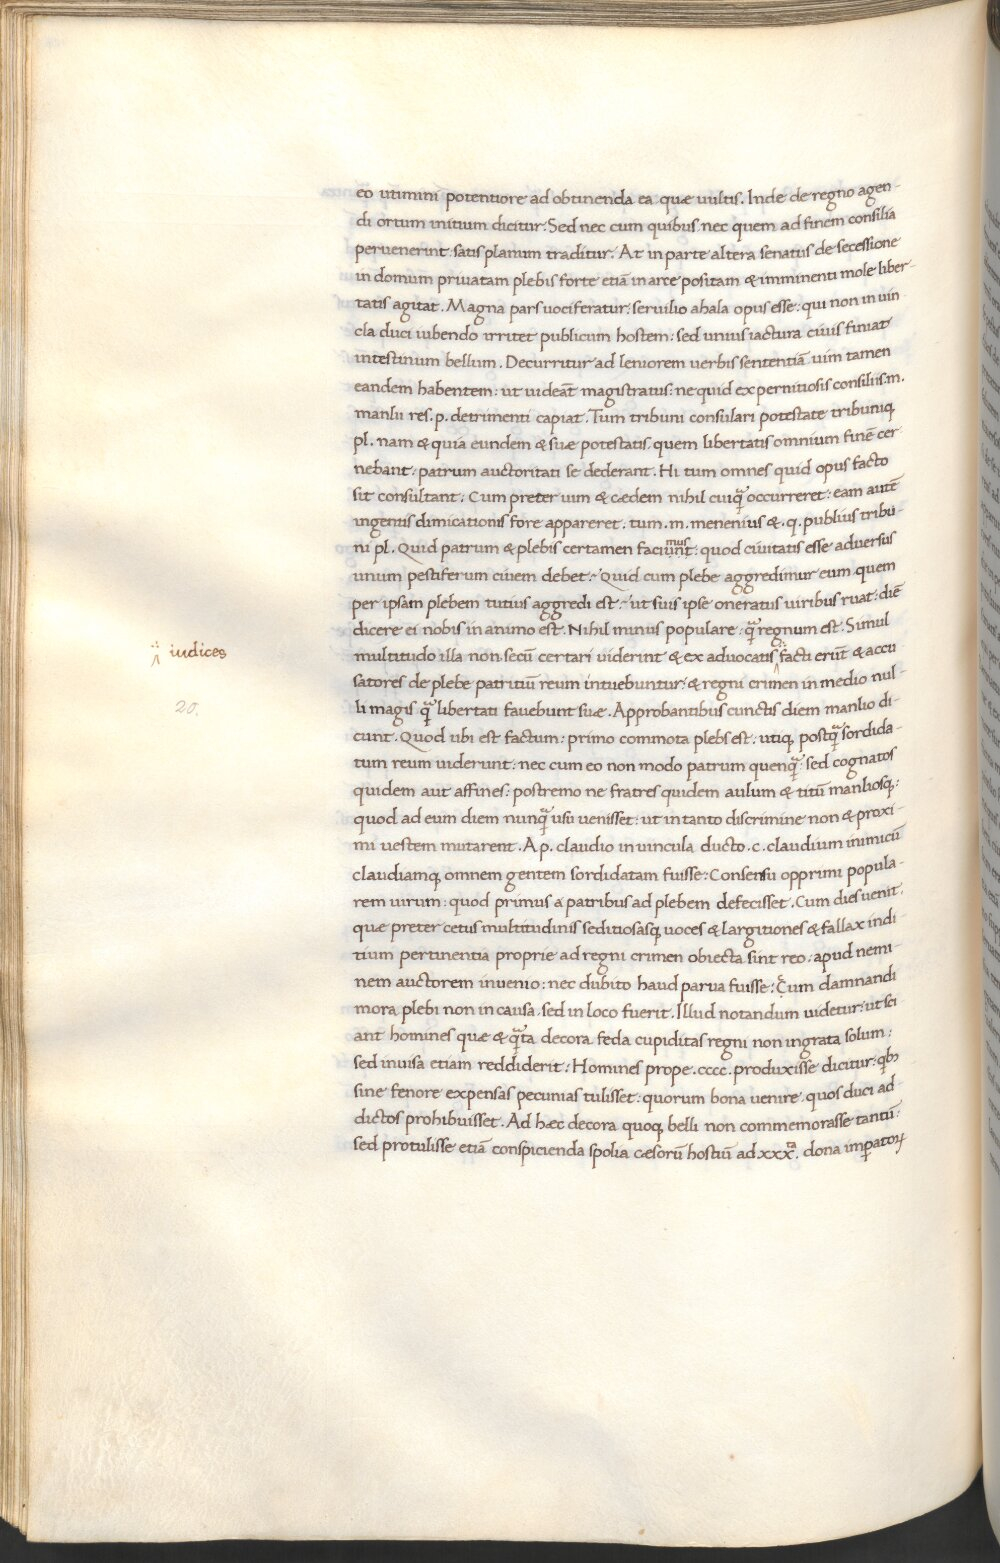 eo utimini potentiore ad obtinenda ea quæ uultis. Inde de regno agen-
di ortum initium dicitur: Sed nec cum quibus nec quem ad finem consilia
pervenerint satis planum traditur. At in parte altera senatus de secessione
in domum privatam plebis forte etiã in arce positam & imminenti mole liber-
tatis agitat. Magna pars vociferatur: servilio ahala opus esse: qui non in uin
cla duci iubendo irritet publicum hostem: sed unius iactura civis finiat
intestinum bellum. Decurritur ad leniorem verbis sententiã uim tamen
eandem habentem: ut videãt magistratus: ne quid ex pernitiosis consiliis .m.
manlii res. p. detrimenti capiat. Tum tribuni consulari potestate tribuniq,
pl. nam & quia eundem & suæ potestatis quem libertatis omnium finẽ cer
nebant: patrum auctoritati se dederant. Hi tum omnes quid opus facto
sit consultant. Cum preter uim & cædem nihil cuiq̃ occurreret: eam autẽ
ingentis dimicationis fore appareret. tum .m. menenius &. q. publius tribu-
ni pl. Quid patrum & plebis certamen faciunt mus: quod civitatis esse adversus
unum pestiferum civem debet: Quid cum plebe aggredimur eum quem
per ipsam plebem tutius aggredi est: ut suis ipse oneratus viribus ruat: diẽ
dicere ei nobis in animo est. Nihil minus populare q̃ regnum est. Simul
multitudo illa non secũ certari viderint & ex advocatis facti erũt & accu
iudices
satores de plebe patritiũ reum intuebuntur: & regni crimen in medio nul-
20.
li magis q̃ libertati favebunt suæ. Approbantibus cunctis diem manlio di
cunt. Quod ubi est factum: primo commota plebs est. utiq, postq̃ sordida-
tum reum uiderunt: nec cum eo non modo patrum quenq̃: sed cognatos
quidem aut affines: postremo ne fratres quidem aulum & titũ manliosq,:
quod ad eum diem nunq̃ usu venisset: ut in tanto discrimine non & proxi-
mi vestem mutarent. Ap. claudio in vincula ducto .c. claudium inimicũ
claudiamq, omnem gentem sordidatam fuisse: Consensu opprimi popula-
rem uirum: quod primus a patribus ad plebem defecisset. Cum dies venit.
quæ preter cetus multitudinis seditiosasq, voces & largitiones & fallax indi-
tium pertinentia proprie ad regni crimen obiecta sint reo: apud nemi-
nem auctorem invenio: nec dubito haud parva fuisse: Cum damnandi
mora plebi non in causa sed in loco fuerit. Illud notandum uidetur: ut sci
ant homines quæ & q̃ta decora feda cupiditas regni non ingrata solum:
sed inuisa etiam reddiderit: Homines prope .cccc. produxisse dicitur: qb3
sine fenore expensas pecunias tulisset: quorum bona venire quos duci ad
dictos prohibuisset. Ad hæc decora quoq, belli non commemorasse tantũ:
sed protulisse etiã conspicienda spolia cæsorũ hostiũ ad xxxᵃ. dona imperatoꝝ